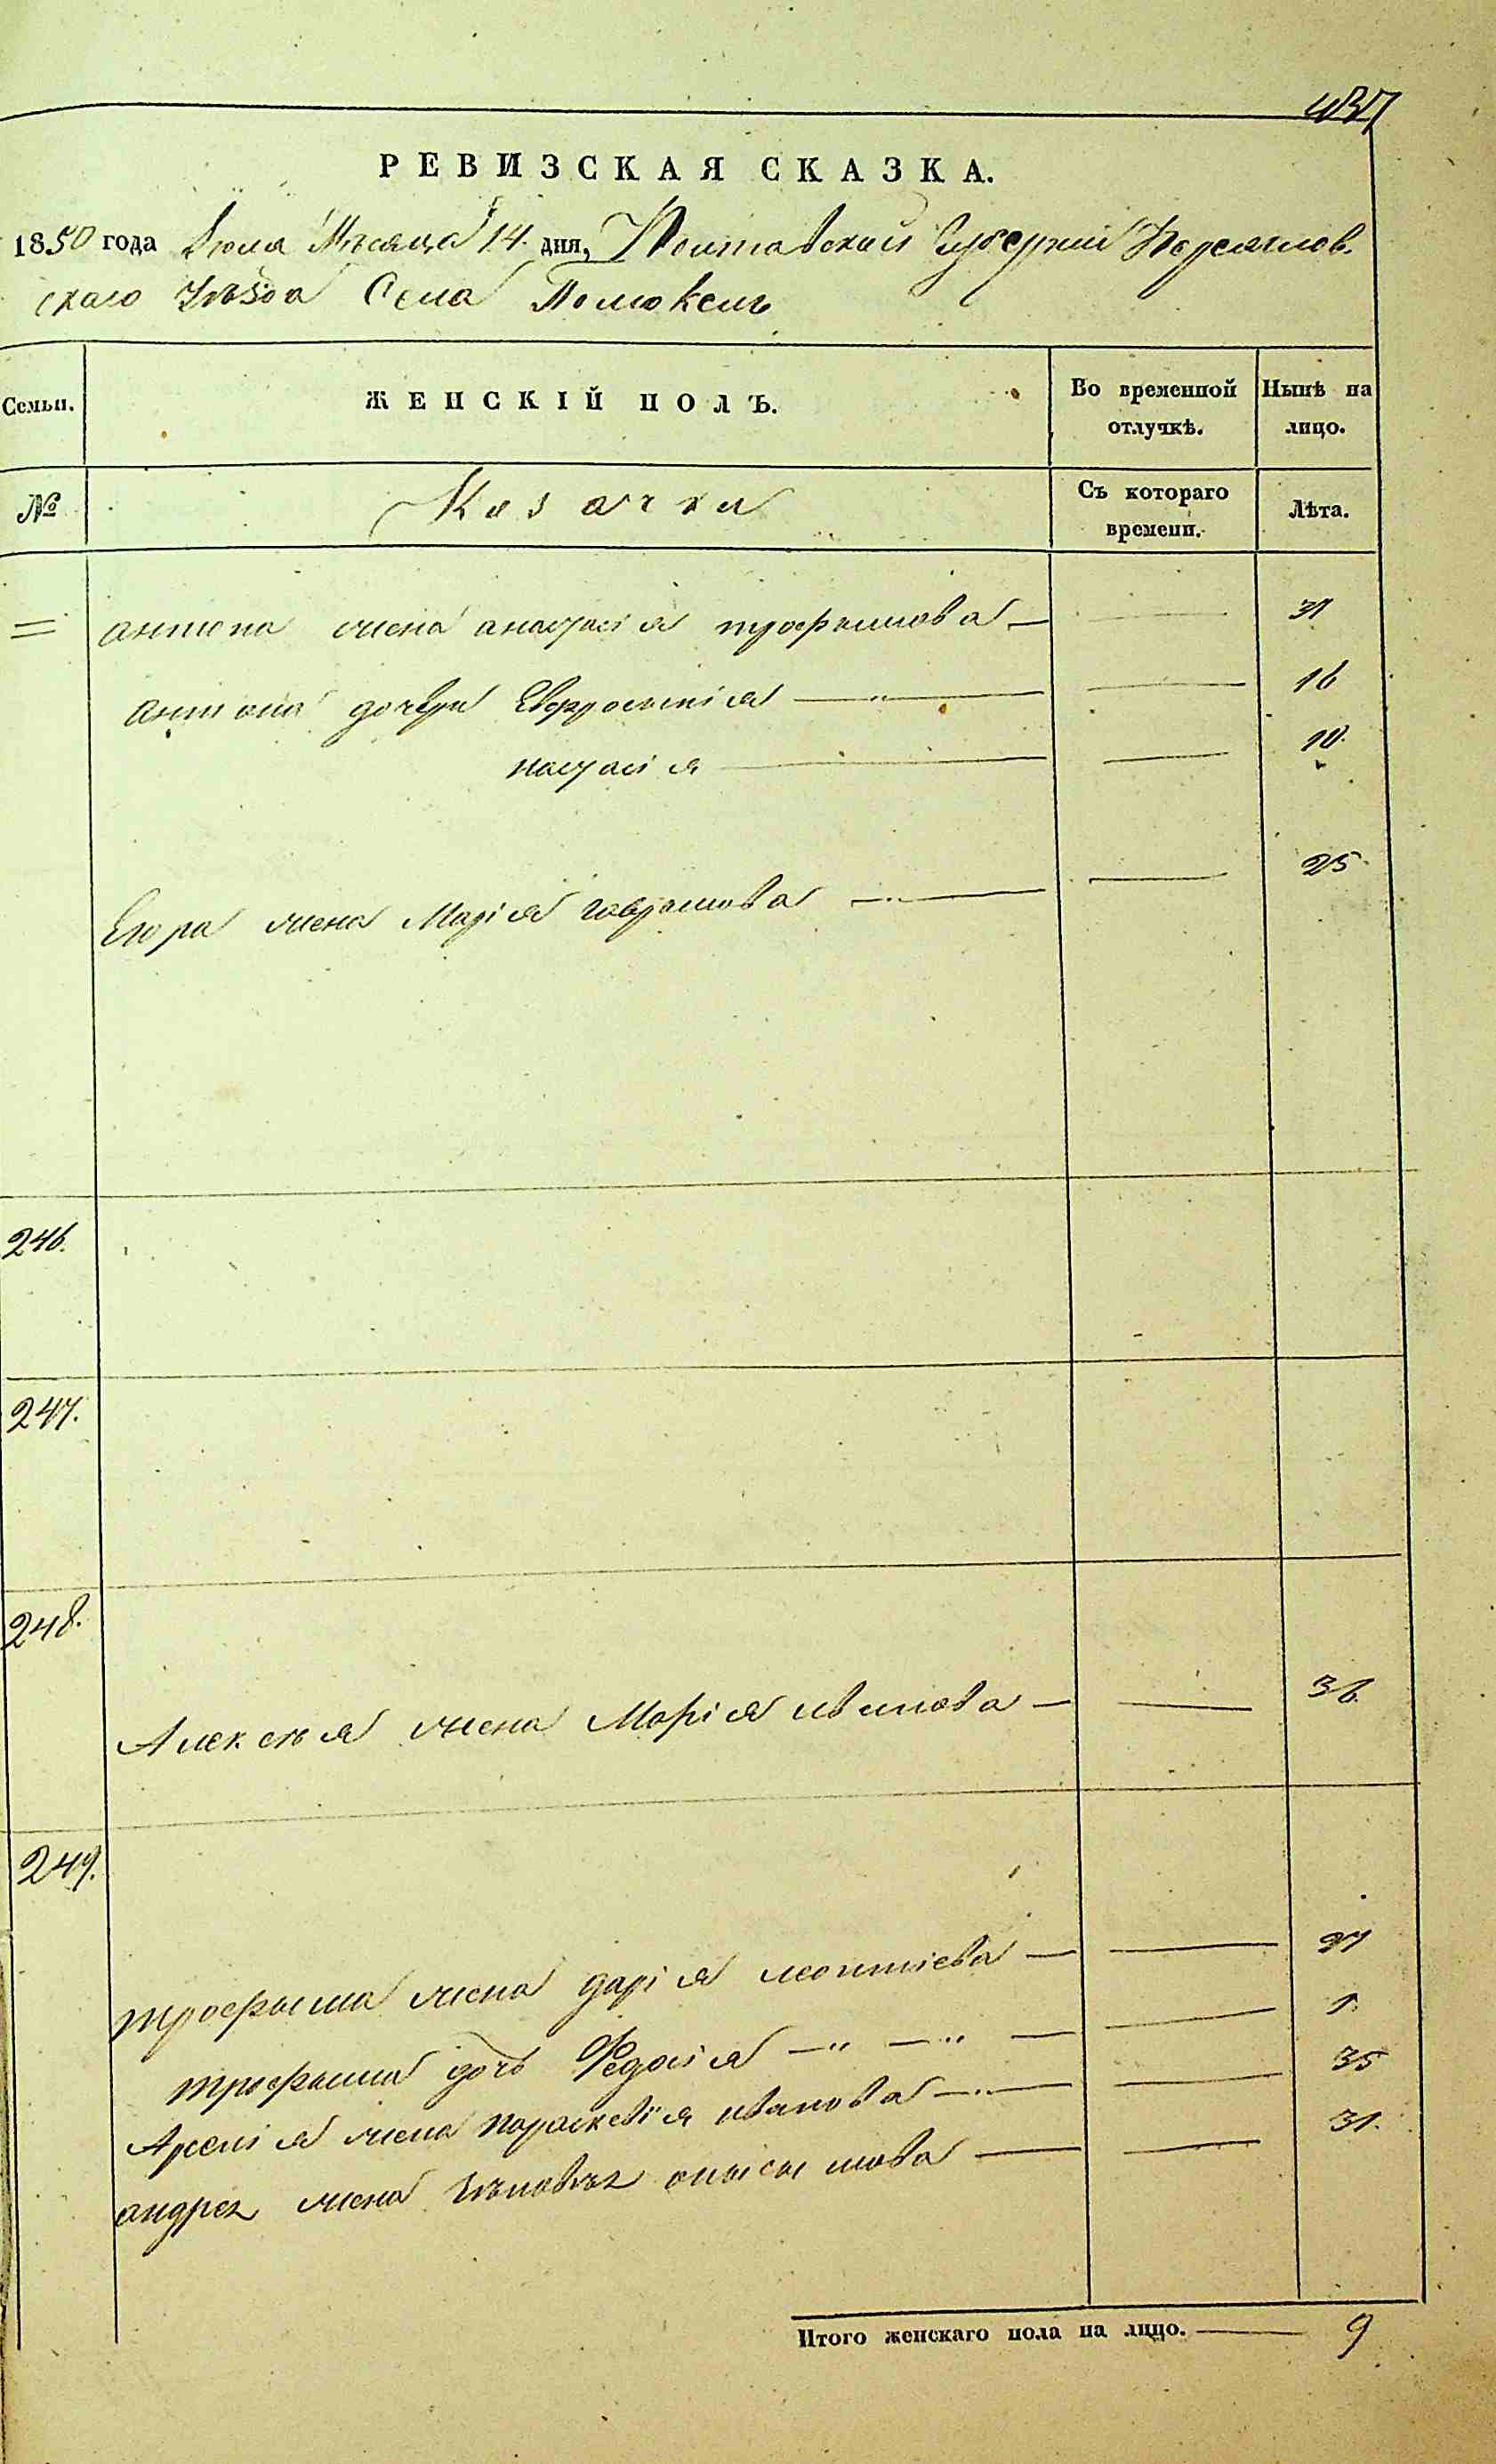 РЕВИЗСКАЯ СКАЗКА.
1850 года Июля Мѣсяца 14. дня, Полтавской Губерніи Переяслов-
скаго Уѣзда Села Помоклъ
Семьи. ЖЕНСКІЙ ПОЛЪ. Во временной отлучкѣ. Нынѣ на лицо.
№ Козачки Съ котораго времени. Лѣта.
= антона жена анастасія трофимова — 31
антона дочери Евфросинія — 16
настасія — 10.
Егора жена Марія гаврилова — 25.
246.
247.
248.
Алексѣя жена Марія иванова — 36.
249.
трофима жена дарія леонтіева — 27
трофима дочь Федосія — " — " — 1.
Арсенія жена параскевія иванова — 35
андрея жена 31.
Итого женскаго пола на лицо. — 9